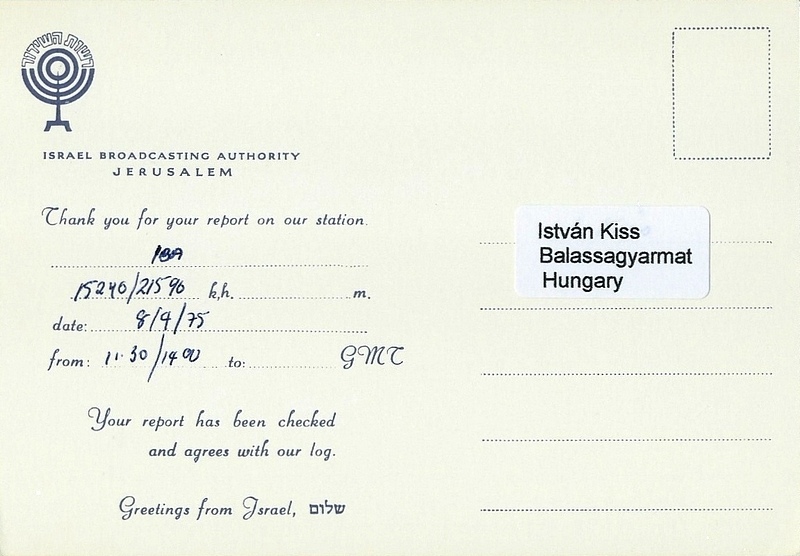 רשות השידור
ISRAEL BROADCASTING AUTHORITY
JERUSALEM
Thank you for your report on our station.
IBA
15240/21590 k.h. m.
date: 8/4/75
from: 11.30/1400 to: GMT
Your report has been checked
and agrees with our log.
Greetings from Israel, שלום
István Kiss
Balassagyarmat
Hungary